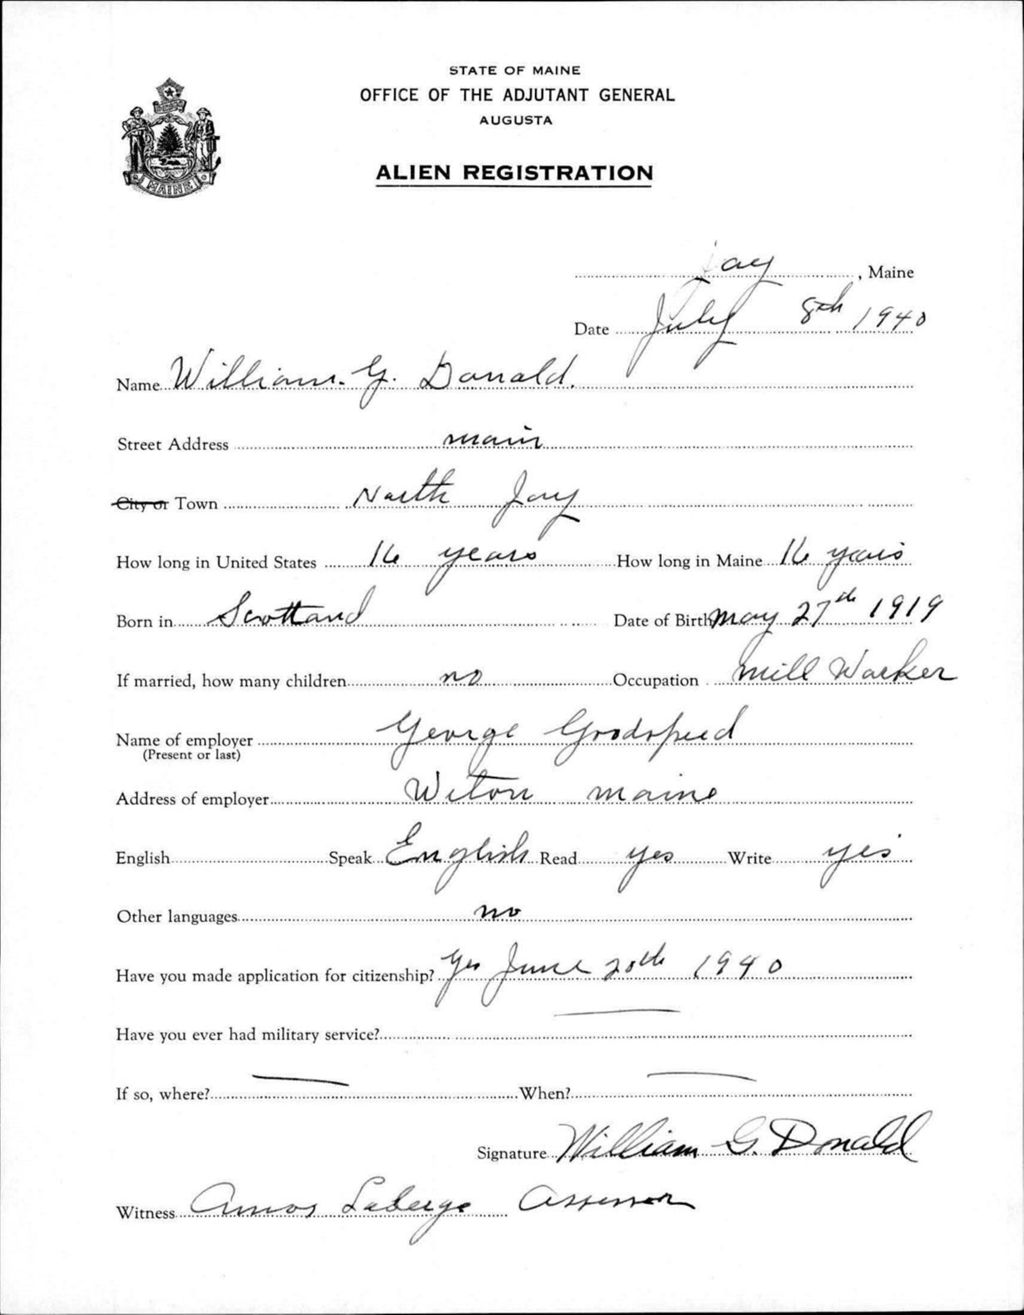 STATE OF MAINE
OFFICE OF THE ADJUTANT GENERAL
AUGUSTA
ALIEN REGISTRATION
MAINE
Jay, Maine
Date July 8th 1940
Name William. G. Donald.
Street Address main
City or Town North Jay
How long in United States 16 years How long in Maine 16 years
Born in Scotland Date of Birth May 27th 1919
If married, how many children no Occupation Mill Worker
Name of employer George Goodspeed
(Present or last)
Address of employer Wilton maine
English Speak English Read yes Write yes
Other languages no
Have you made application for citizenship? Yes June 20th 1940
Have you ever had military service? —
If so, where? — When? —
Signature William G. Donald
Witness Amos Laberge Assessor